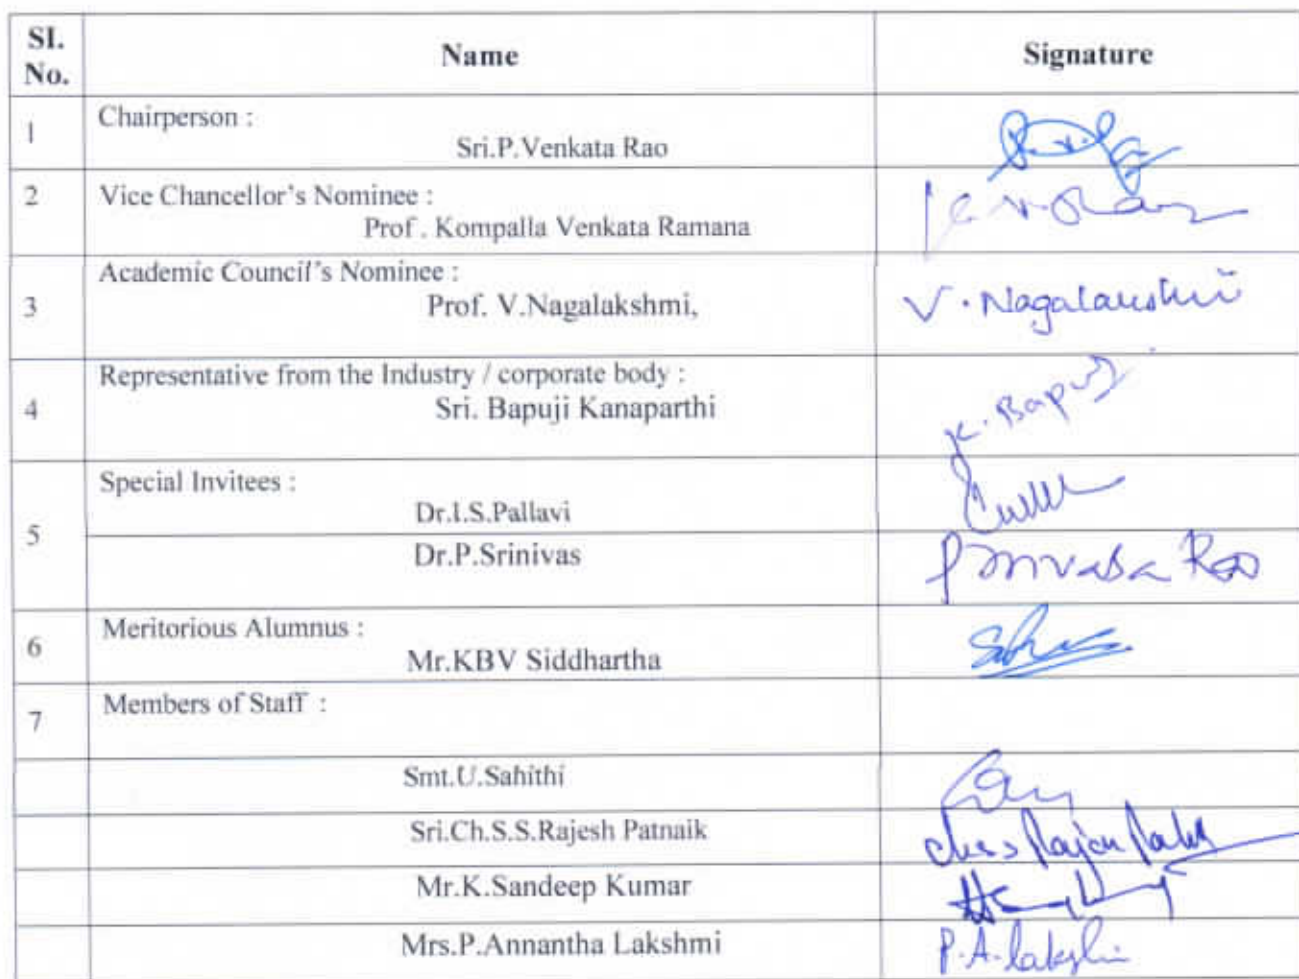 SI. No. Name Signature
1 Chairperson :
Sri.P.Venkata Rao
2 Vice Chancellor's Nominee :
Prof . Kompalla Venkata Ramana
Academic Council's Nominee :
3 Prof. V.Nagalakshmi, V. Nagalakshmi
Representative from the Industry / corporate body :
4 Sri. Bapuji Kanaparthi K. Bapuji
Special Invitees :
Dr.I.S.Pallavi
5
Dr.P.Srinivas Rao
Meritorious Alumnus :
6 Mr.KBV Siddhartha
Members of Staff :
7
Smt.U.Sahithi
Sri.Ch.S.S.Rajesh Patnaik
Mr.K.Sandeep Kumar
Mrs.P.Annantha Lakshmi P.A.lakshmi